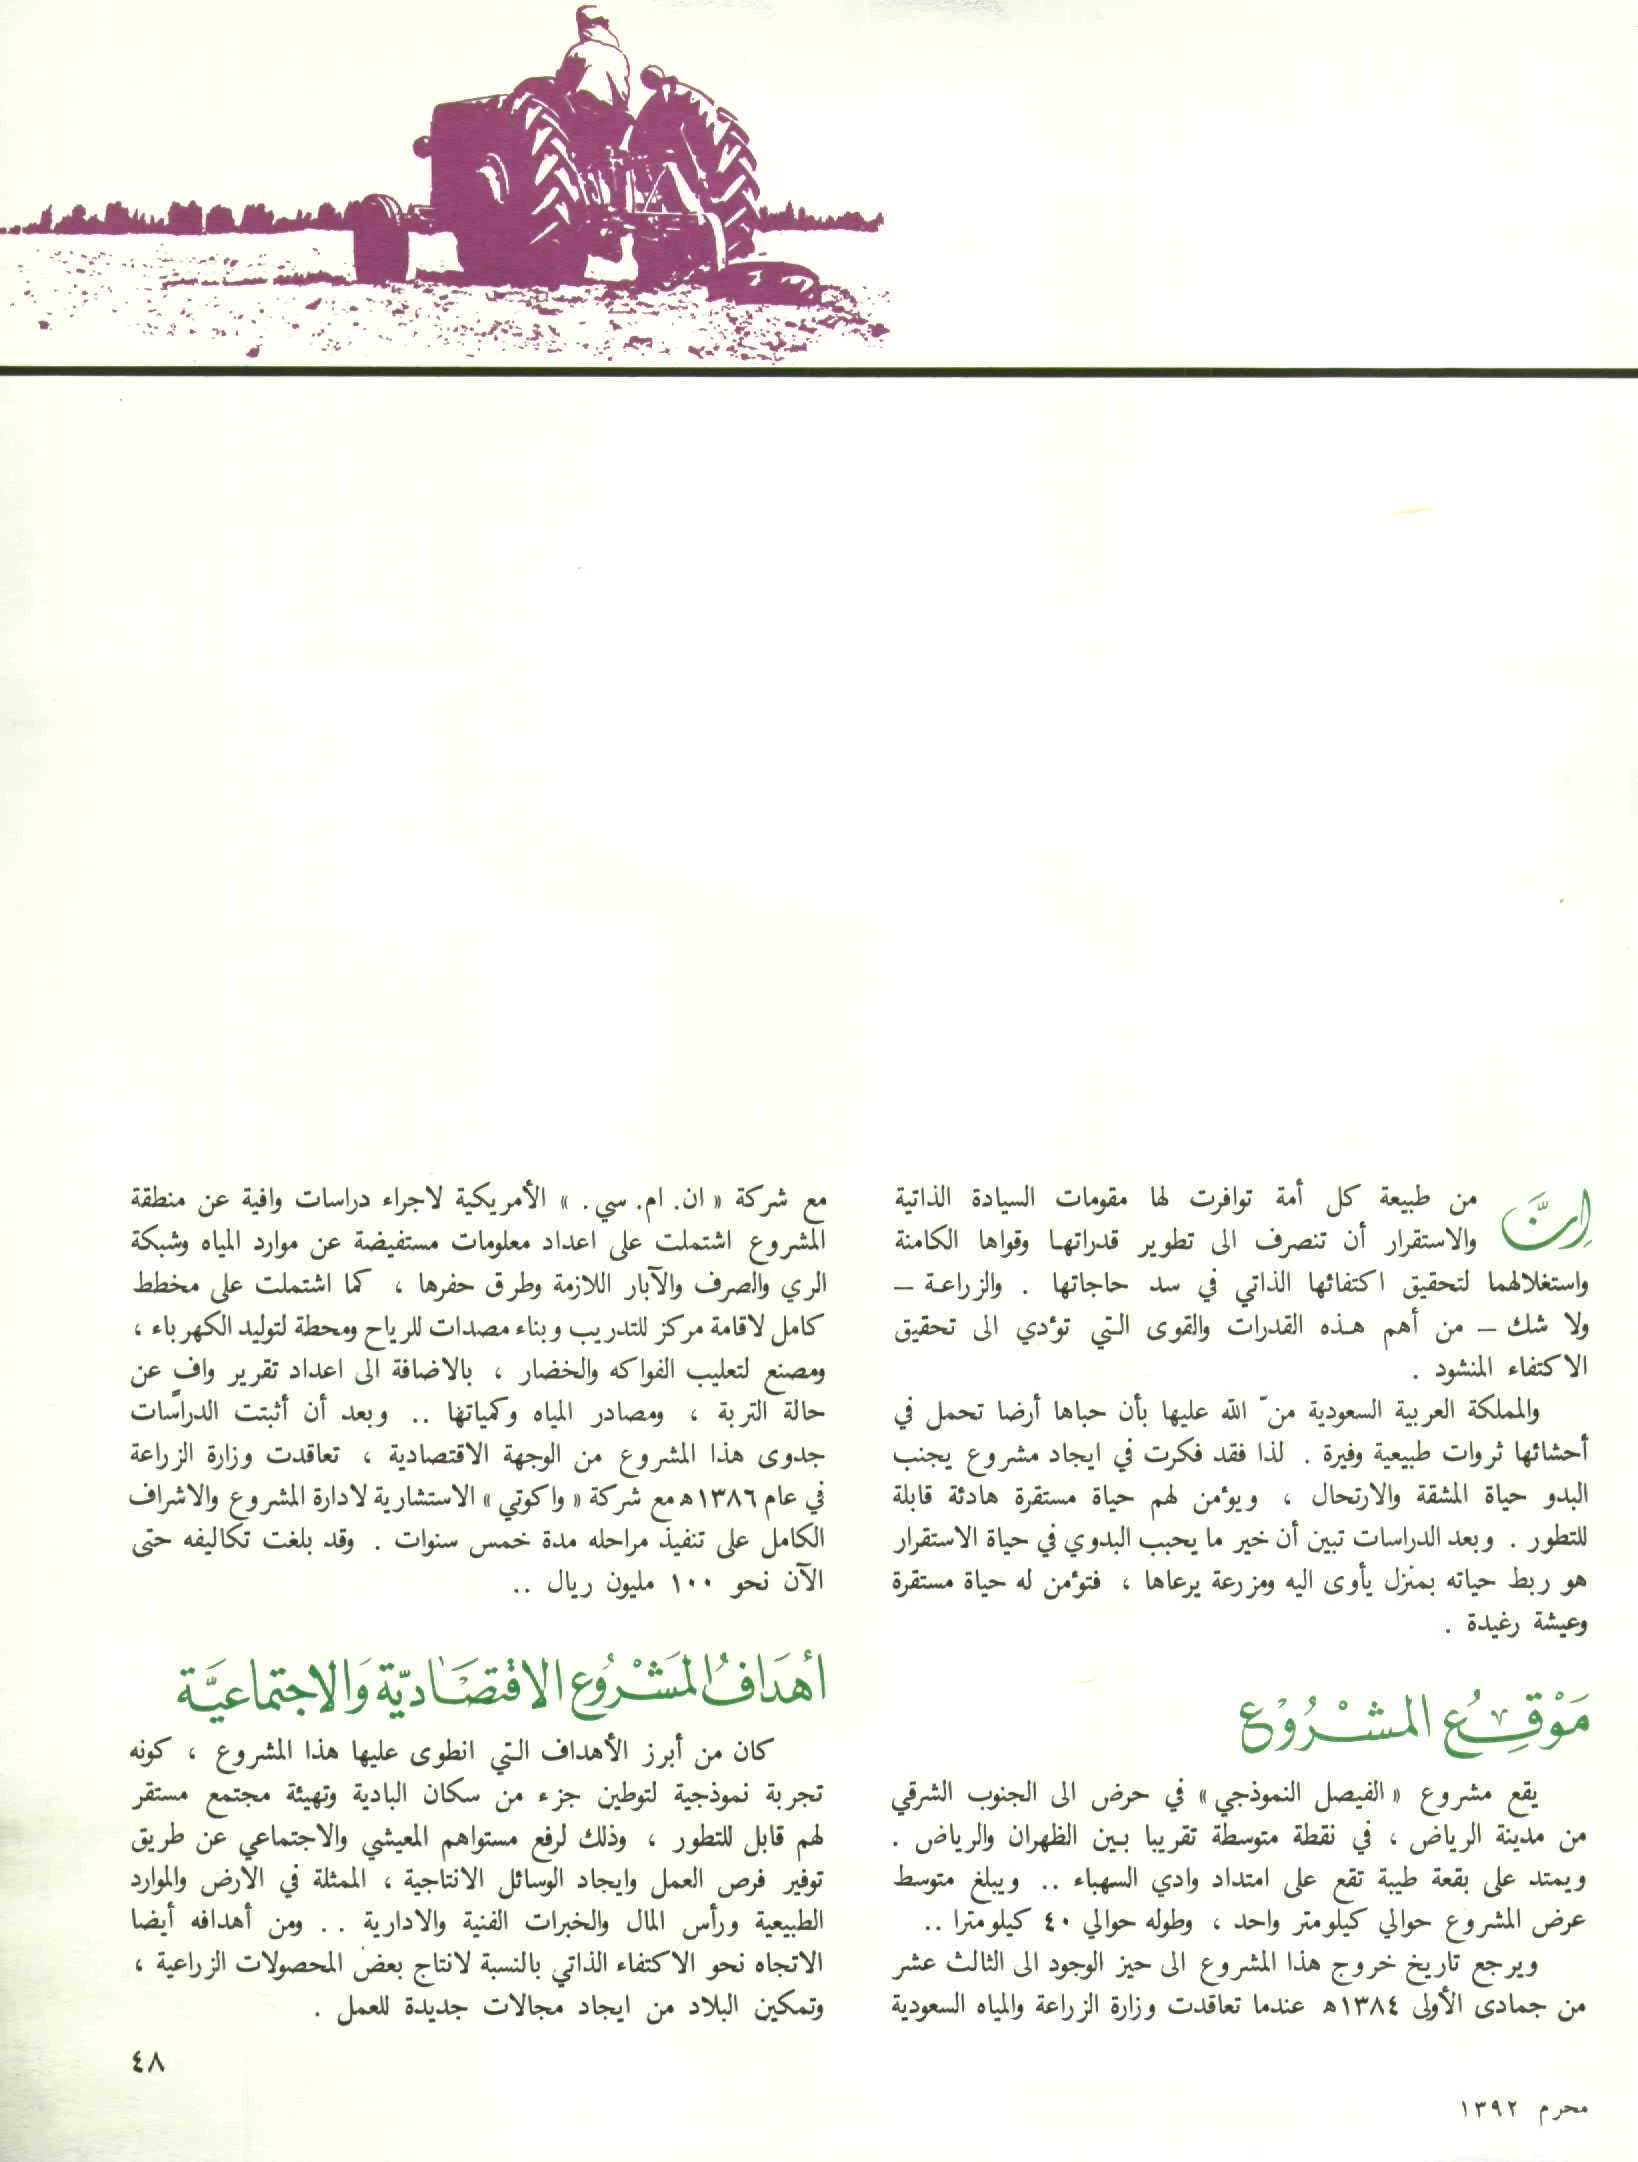 إنَّ من طبيعة كل أمة توافرت لها مقومات السيادة الذاتية
والاستقرار أن تنصرف الى تطوير قدراتها وقواها الكامنة
واستغلالهما لتحقيق اكتفائها الذاتي في سد حاجاتها . والزراعة –
ولا شك – من أهم هذه القدرات والقوى التي تؤدي الى تحقيق
الاكتفاء المنشود .
والمملكة العربية السعودية منّ الله عليها بأن حباها أرضا تحمل في
أحشائها ثروات طبيعية وفيرة . لذا فقد فكرت في ايجاد مشروع يجنب
البدو حياة المشقة والارتحال ، ويؤمن لهم حياة مستقرة هادئة قابلة
للتطور . وبعد الدراسات تبين أن خير ما يحبب البدوي في حياة الاستقرار
هو ربط حياته بمنزل يأوى اليه ومزرعة يرعاها ، فتؤمن له حياة مستقرة
وعيشة رغيدة .
مَوْقِعُ المشْرُوْع
يقع مشروع « الفيصل النموذجي » في حرض الى الجنوب الشرقي
من مدينة الرياض ، في نقطة متوسطة تقريبا بين الظهران والرياض .
ويمتد على بقعة طيبة تقع على امتداد وادي السهباء .. ويبلغ متوسط
عرض المشروع حوالي كيلومتر واحد ، وطوله حوالي ٤٠ كيلومترا ..
ويرجع تاريخ خروج هذا المشروع الى حيز الوجود الى الثالث عشر
من جمادى الأولى ١٣٨٤ه عندما تعاقدت وزارة الزراعة والمياه السعودية
مع شركة « ان. ام. سي. » الأمريكية لاجراء دراسات وافية عن منطقة
المشروع اشتملت على اعداد معلومات مستفيضة عن موارد المياه وشبكة
الري والصرف والآبار اللازمة وطرق حفرها ، كما اشتملت على مخطط
كامل لاقامة مركز للتدريب وبناء مصدات للرياح ومحطة لتوليد الكهرباء ،
ومصنع لتعليب الفواكه والخضار ، بالاضافة الى اعداد تقرير وافٍ عن
حالة التربة ، ومصادر المياه وكمياتها .. وبعد أن أثبتت الدراسات
جدوى هذا المشروع من الوجهة الاقتصادية ، تعاقدت وزارة الزراعة
في عام ١٣٨٦ه مع شركة « واكوتي » الاستشارية لادارة المشروع والاشراف
الكامل على تنفيذ مراحله مدة خمس سنوات . وقد بلغت تكاليفه حتى
الآن نحو ١٠٠ مليون ريال ..
أهدَافُ المَشْرُوع الاقْتصَاديّة وَالاجتماعيَّة
كان من أبرز الأهداف التي انطوى عليها هذا المشروع ، كونه
تجربة نموذجية لتوطين جزء من سكان البادية وتهيئة مجتمع مستقر
لهم قابل للتطور ، وذلك لرفع مستواهم المعيشي والاجتماعي عن طريق
توفير فرص العمل وايجاد الوسائل الانتاجية ، الممثلة في الارض والموارد
الطبيعية ورأس المال والخبرات الفنية والادارية .. ومن أهدافه أيضا
الاتجاه نحو الاكتفاء الذاتي بالنسبة لانتاج بعض المحصولات الزراعية ،
وتمكين البلاد من ايجاد مجالات جديدة للعمل .
٤٨
محرم ١٣٩٢